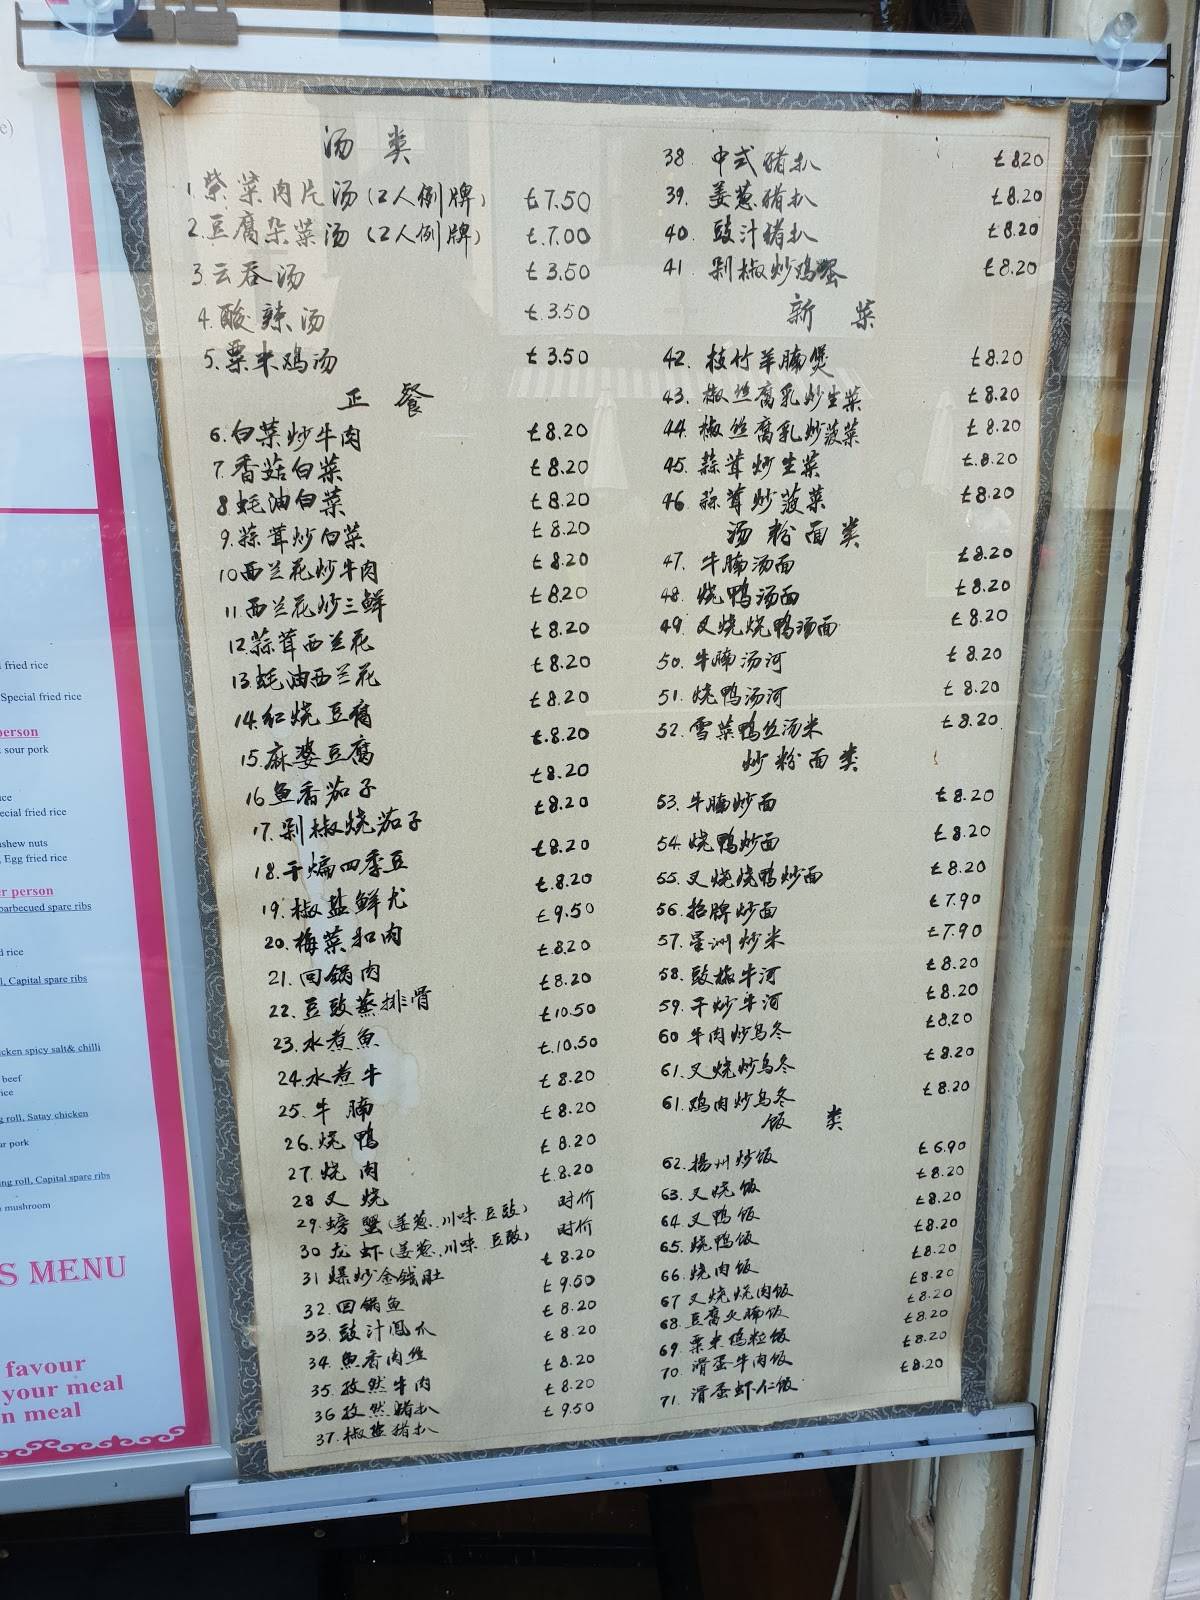 e)
fried rice
Special fried rice
person
sour pork
ice
ecial fried rice
shew nuts
, Egg fried rice
er person
barbecued spare ribs
d rice
l, Capital spare ribs
cken spicy salt& chilli
beef
rice
g roll, Satay chicken
ur pork
ing roll, Capital spare ribs
mushroom
S MENU
favour
your meal
n meal
汤 类
1.紫菜肉片汤(2人例牌) £7.50
2.豆腐杂菜汤(2人例牌) £.7.00
3.云吞汤 £3.50
4.酸辣汤 £.3.50
5.粟米鸡汤 £3.50
正 餐
6.白菜炒牛肉 £8.20
7.香菇白菜 £8.20
8.蚝油白菜 £8.20
9.蒜茸炒白菜 £8.20
10西兰花炒牛肉 £8.20
11西兰花炒三鲜 £8.20
12.蒜茸西兰花 £8.20
13.蚝油西兰花 £8.20
14.红烧豆腐 £8.20
15.麻婆豆腐 £.8.20
16鱼香茄子 £8.20
17.剁椒烧茄子 £8.20
18.干煸四季豆 £8.20
19.椒盐鲜尤 £.8.20
20.梅菜扣肉 £9.50
21.回锅肉 £8.20
22.豆豉蒸排骨 £8.20
23.水煮魚 £10.50
24.水煮牛 £.10.50
25.牛腩 £8.20
26.烧鸭 £8.20
27.烧肉 £8.20
28叉烧 £.8.20
29.螃蟹(姜葱.川味 豆豉) 时价
30龙虾(姜葱.川味 豆豉) 时价
31爆炒金钱肚 £8.20
32.回锅鱼 £9.50
33.豉汁凤爪 £8.20
34.魚香肉丝 £8.20
35.孜然牛肉 £8.20
36孜然猪扒 £8.20
37.椒盐猪扒 £9.50
38. 中式猪扒 £8.20
39. 姜葱猪扒 £8.20
40. 豉汁猪扒 £8.20
41. 剁椒炒鸡蛋 £8.20
新 菜
42. 枝竹羊腩煲 £8.20
43. 椒丝腐乳炒生菜 £8.20
44. 椒丝腐乳炒菠菜 £8.20
45. 蒜茸炒生菜 £.8.20
46. 蒜茸炒菠菜 £8.20
汤粉面类
47. 牛腩汤面 £8.20
48. 烧鸭汤面 £8.20
49. 叉烧烧鸭汤面 £8.20
50. 牛腩汤河 £8.20
51. 烧鸭汤河 £8.20
52. 雪菜鸭丝汤米 £8.20
炒粉面类
53. 牛腩炒面 £8.20
54. 烧鸭炒面 £8.20
55. 叉烧烧鸭炒面 £8.20
56. 招牌炒面 £7.90
57. 星洲炒米 £7.90
58. 豉椒牛河 £8.20
59. 干炒牛河 £8.20
60 牛肉炒乌冬 £8.20
61. 叉烧炒乌冬 £8.20
61. 鸡肉炒乌冬 £8.20
饭 类
62. 揚州炒饭 £6.90
63. 叉烧饭 £8.20
64. 叉鸭饭 £8.20
65. 烧鸭饭 £8.20
66. 烧肉饭 £8.20
67 叉烧烧肉饭 £8.20
68. 豆腐火腩饭 £8.20
69. 粟米鸡粒饭 £8.20
70 滑蛋牛肉饭 £8.20
71. 滑蛋虾仁饭 £8.20